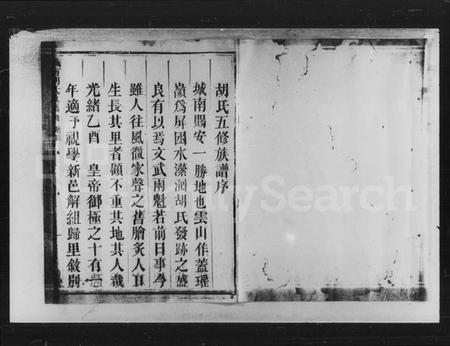 胡氏五修族譜序
城南賜安一勝地也雲山作蓋瓘
嶺爲屏國水瀠洄胡氏發跡之盛
良有以焉文武兩魁若前日事學
雖人往風微家聲之舊膾炙人口
生長其里者顧不重其地其人哉
光緒乙酉 皇帝御極之十有
年適予視學新邑解組歸里敘別